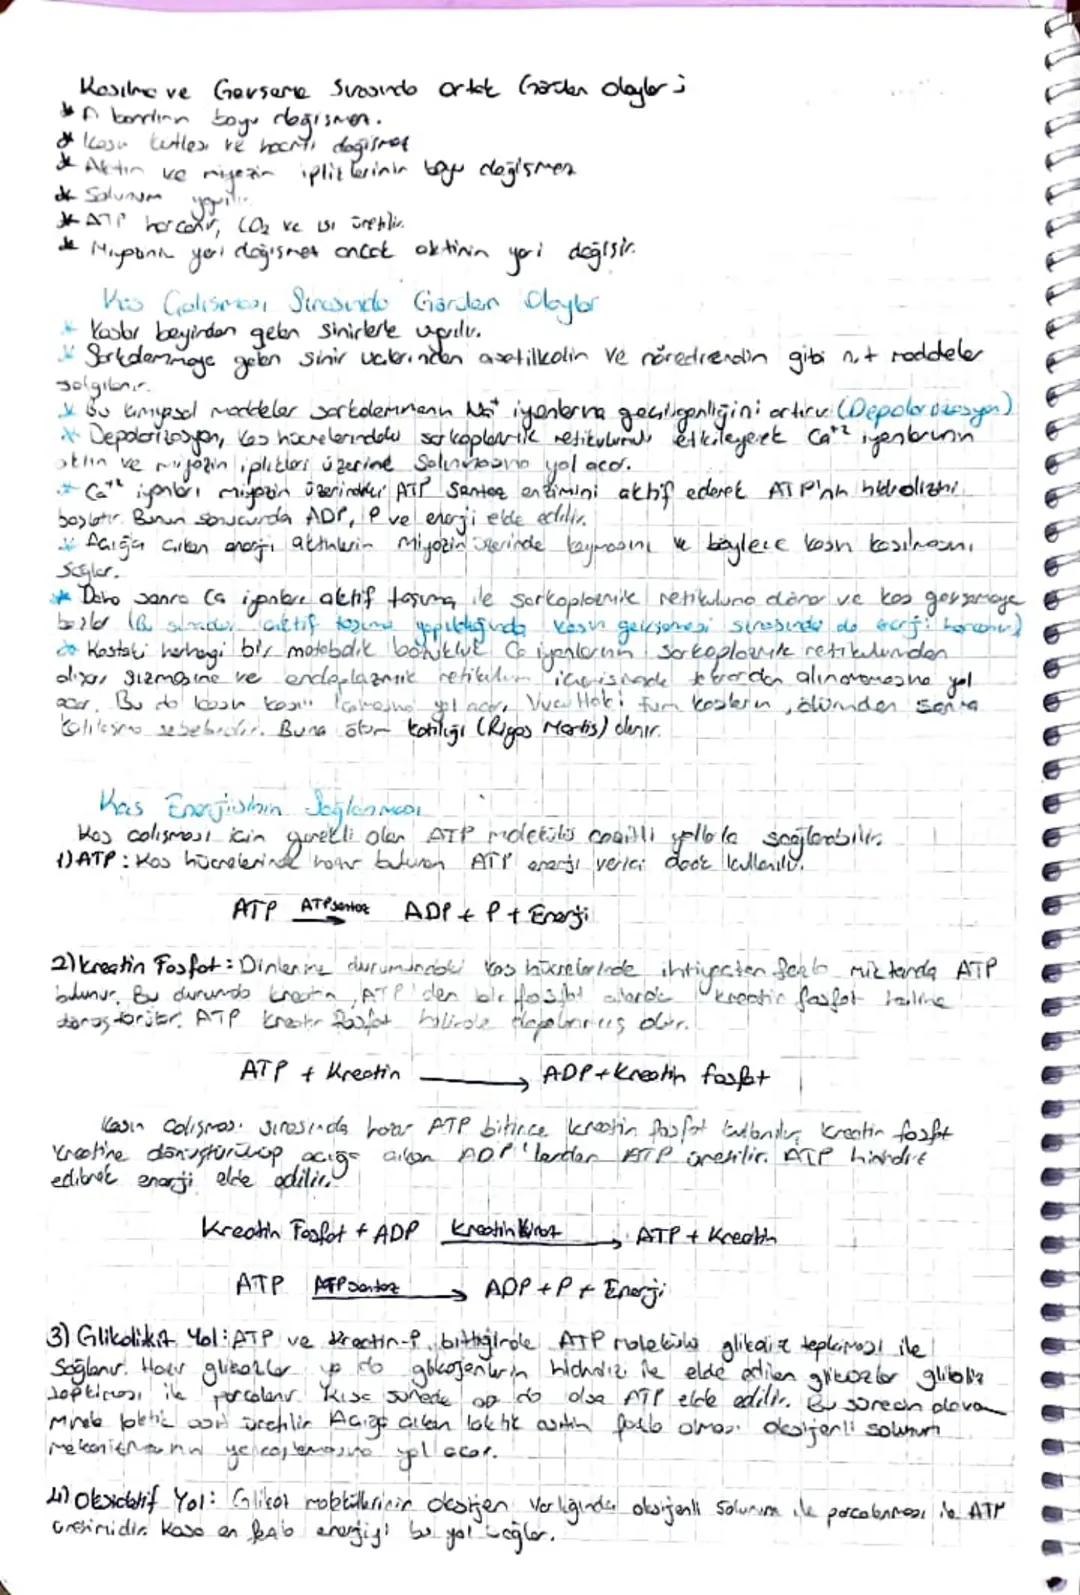 Kasılma ve Gevşeme Sırasında ortak Görülen olaylar ;
* A bandının boyu değişmez.
* Kasın kütlesi ve hacmi değişmez
* Aktin ve miyozin ipliklerinin boyu değişmez
* Solunum yapılır.
* ATP harcanır, CO2 ve ısı üretilir.
* Miyozinin yeri değişmez ancak aktinin yeri değişir.
Kas Çalışması Sırasında Görülen Olaylar
* Kaslar beyinden gelen sinirlerle uyarılır.
* Sarkolemmaya gelen sinir uçlarından asetilkolin ve noredrenalin gibi n.t maddeler
salgılanır.
* Bu kimyasal maddeler sarkolemmanın Na+ iyonlarına geçirgenliğini artırır (Depolarizasyon)
* Depolarizasyon, kas hücrelerindeki sarkoplazmik retikulumu etkileyerek Ca+2 iyonlarının
aktin ve miyozin iplikleri üzerine salınmasına yol açar.
* Ca+2 iyonları miyozin üzerindeki ATP Sentaz enzimini aktif ederek ATP'nin hidrolizini
başlatır. Bunun sonucunda ADP, P ve enerji elde edilir.
* Açığa çıkan enerji aktinlerin miyozin üzerinde kaymasını ve böylece kasın kasılmasını
sağlar.
* Daha sonra Ca iyonları aktif taşıma ile sarkoplazmik retikuluma döner ve kas gevşemeye
başlar (Bu sırada aktif taşıma yapıldığında kasın gevşemesi sırasında da enerji harcanır)
* Kastaki herhangi bir metabolik bozukluk Ca iyonlarının sarkoplazmik retikulumdan
dışarı sızmasına ve endoplazmik retikulum içerisine tekrardan alınamamasına yol
açar. Bu da kasın kasılı kalmasına yol açar. Vücuttaki tüm kasların, ölümden sonra
katılaşma sebebidir. Buna ölüm katılığı (Rigos Mortis) denir.
Kas Enerjisinin Sağlanması
Kas çalışması için gerekli olan ATP molekülü çeşitli yollarla sağlanabilir.
1) ATP : Kas hücrelerinde hazır bulunan ATP enerji verici olarak kullanılır.
ATP ATPsentaz ADP + P + Enerji
2) Kreatin Fosfat : Dinlenme durumundaki kas hücrelerinde ihtiyaçtan fazla miktarda ATP
bulunur. Bu durumda kreatin, ATP'den bir fosfat alarak kreatin fosfat haline
dönüştürülür. ATP kreatin fosfat halinde depolanmış olur.
ATP + Kreatin → ADP + Kreatin fosfat
Kasın çalışması sırasında hazır ATP bitince kreatin fosfat kullanılır, kreatin fosfat
kreatine dönüştürülüp açığa çıkan ADP'lerden ATP üretilir. ATP hidroliz
edilerek enerji elde edilir.
Kreatin Fosfat + ADP Kreatin Kinaz → ATP + Kreatin
ATP ATPsentaz → ADP + P + Enerji
3) Glikolikit Yol : ATP ve Kreatin-P bittiğinde ATP molekülü glikoliz tepkimesi ile
sağlanır. Hazır glikozlar ya da glikojenlerin hidrolizi ile elde edilen glikozlar glikoliz
tepkimesi ile parçalanır. Kısa sürede az da olsa ATP elde edilir. Bu sürecin devamında
laktik asit üretilir. Açığa çıkan laktik asitin fazla olması oksijenli solunum
mekanizmasının yavaşlamasına yol açar.
4) Oksidatif Yol : Glikoz moleküllerinin oksijen varlığında oksijenli solunum ile parçalanması ile ATP
üretimidir. Kasa en fazla enerjiyi bu yol sağlar.